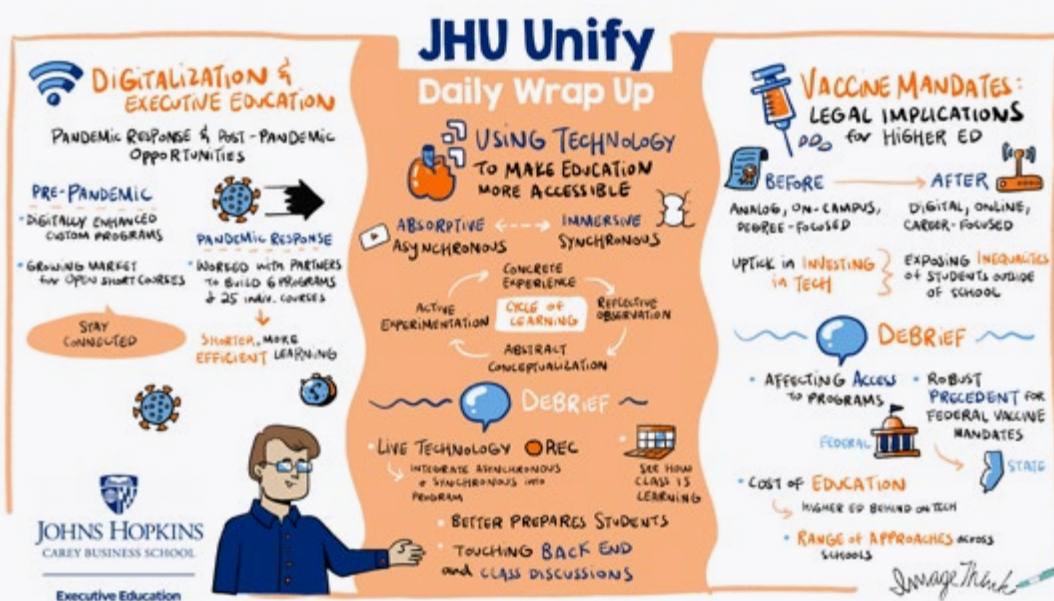 JHU Unify
Daily Wrap Up
DIGITALIZATION &
EXECUTIVE EDUCATION
PANDEMIC RESPONSE & POST-PANDEMIC
OPPORTUNITIES
PRE-PANDEMIC
• DIGITALLY ENHANCED
CUSTOM PROGRAMS
• GROWING MARKET
for OPEN SHORT COURSES
STAY
CONNECTED
PANDEMIC RESPONSE
• WORKED WITH PARTNERS
TO BUILD 6 PROGRAMS
& 25 INDIV. COURSES
SHORTER, MORE
EFFICIENT LEARNING
JOHNS HOPKINS
CAREY BUSINESS SCHOOL
Executive Education
USING TECHNOLOGY
TO MAKE EDUCATION
MORE ACCESSIBLE
ABSORPTIVE
ASYNCHRONOUS
IMMERSIVE
SYNCHRONOUS
CONCRETE
EXPERIENCE
ACTIVE
EXPERIMENTATION
CYCLE OF
LEARNING
REFLECTIVE
OBSERVATION
ABSTRACT
CONCEPTUALIZATION
DEBRIEF
• LIVE TECHNOLOGY
REC
INTEGRATE ASYNCHRONOUS
& SYNCHRONOUS INTO
PROGRAM
• SEE HOW
CLASS IS
LEARNING
• BETTER PREPARES STUDENTS
• TOUCHING BACK END
and CLASS DISCUSSIONS
VACCINE MANDATES:
LEGAL IMPLICATIONS
for HIGHER ED
BEFORE
AFTER
ANALOG, ON-CAMPUS,
DEGREE-FOCUSED
DIGITAL, ONLINE,
CAREER-FOCUSED
UPTICK in INVESTING
in TECH
EXPOSING INEQUALITIES
of STUDENTS OUTSIDE
OF SCHOOL
DEBRIEF
• AFFECTING ACCESS
to PROGRAMS
• ROBUST
PRECEDENT FOR
FEDERAL VACCINE
MANDATES
FEDERAL
STATE
• COST OF EDUCATION
HIGHER ED BEHIND ON TECH
• RANGE OF APPROACHES ACROSS
SCHOOLS
ImageThink